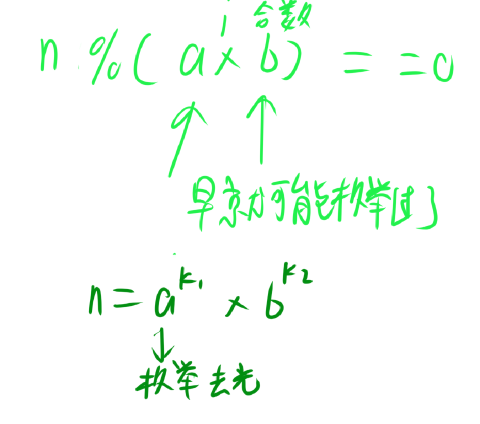 i 合数
n % ( a × b ) = = 0
早就可能枚举过了
n = a^k₁ × b^k₂
枚举去光